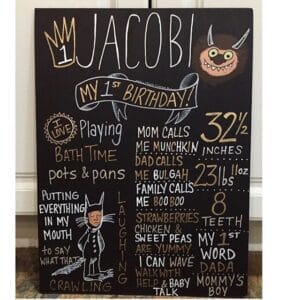 1
JACOBI
MY 1ST BIRTHDAY!
I LOVE
Playing
BATH TIME
pots & pans
PUTTING
EVERYTHING
IN MY
MOUTH
to SAY
WHAT THAT IS
CRAWLING
LAUGHING
MOM CALLS
ME MUNCHKIN
DAD CALLS
ME BULGAH
FAMILY CALLS
ME BOO BOO
STRAWBERRIES
CHICKEN &
SWEET PEAS
ARE YUMMY
I CAN WAVE
WALK WITH
HELP & BABY
TALK
32 1/2
INCHES
23 lbs 11 oz
8
TEETH
MY 1ST
WORD
DADA
MOMMY'S
BOY